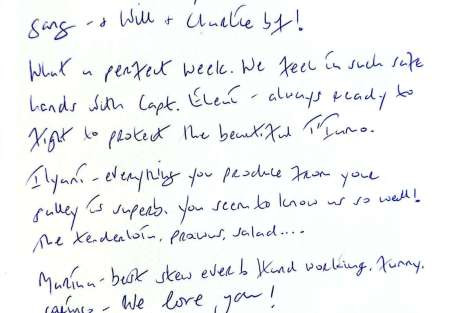 sang - & Will & Charlie bf!
What a perfect week. We feel in such safe
hands with Capt. Eleni - always ready to
fight to protect the beautiful
Ilyani - everything you produce from your
galley is superb. You seem to know us so well!
The tenderloin, prawns, salad....
Marina - best stew ever Hard working, funny,
- We love you!